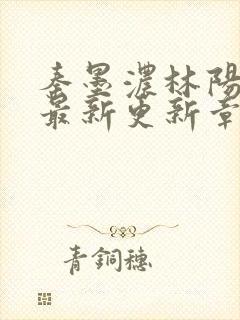 秦墨濃林陽
最新更新章
青銅穗